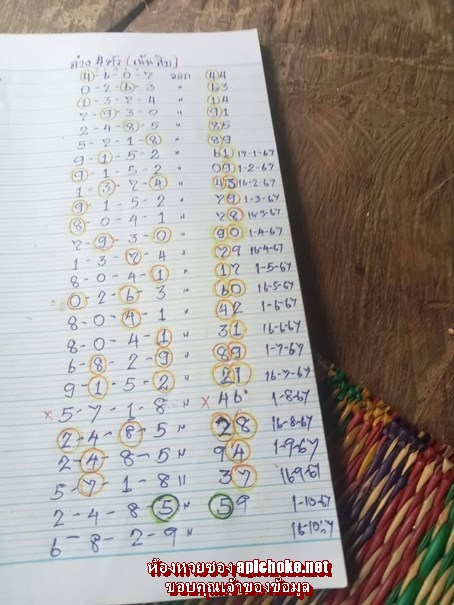 ล่าง 4 ตัว (เน้นสิบ)
4-6-0-7 ออก 44
0-2-6-3 " 63
1-3-7-4 " 14
7-9-3-0 " 91
2-4-8-5 " 85
5-7-1-8 " 89
9-1-5-2 " 61 17-1-67
9-1-5-2 " 09 1-2-67
1-3-7-4 " 43 16-2-67
9-1-5-2 " 79 1-3-67
8-0-4-1 " 78 16-3-67
7-9-3-0 " 90 1-4-67
1-3-7-4 " 79 16-4-67
8-0-4-1 " 17 1-5-67
0-2-6-3 " 60 16-5-67
8-0-4-1 " 42 1-6-67
8-0-4-1 " 31 16-6-67
6-8-2-9 " 89 1-7-67
9-1-5-2 " 21 16-7-67
x 5-7-1-8 " x 46 1-8-67
2-4-8-5 " 28 16-8-67
2-4-8-5 " 94 1-9-67
5-7-1-8 " 37 16-9-67
2-4-8-5 " 59 1-10-67
6-8-2-9 " 16-10-67
ห้องหวยซอง apichoke.net
ขอบคุณเจ้าของข้อมูล